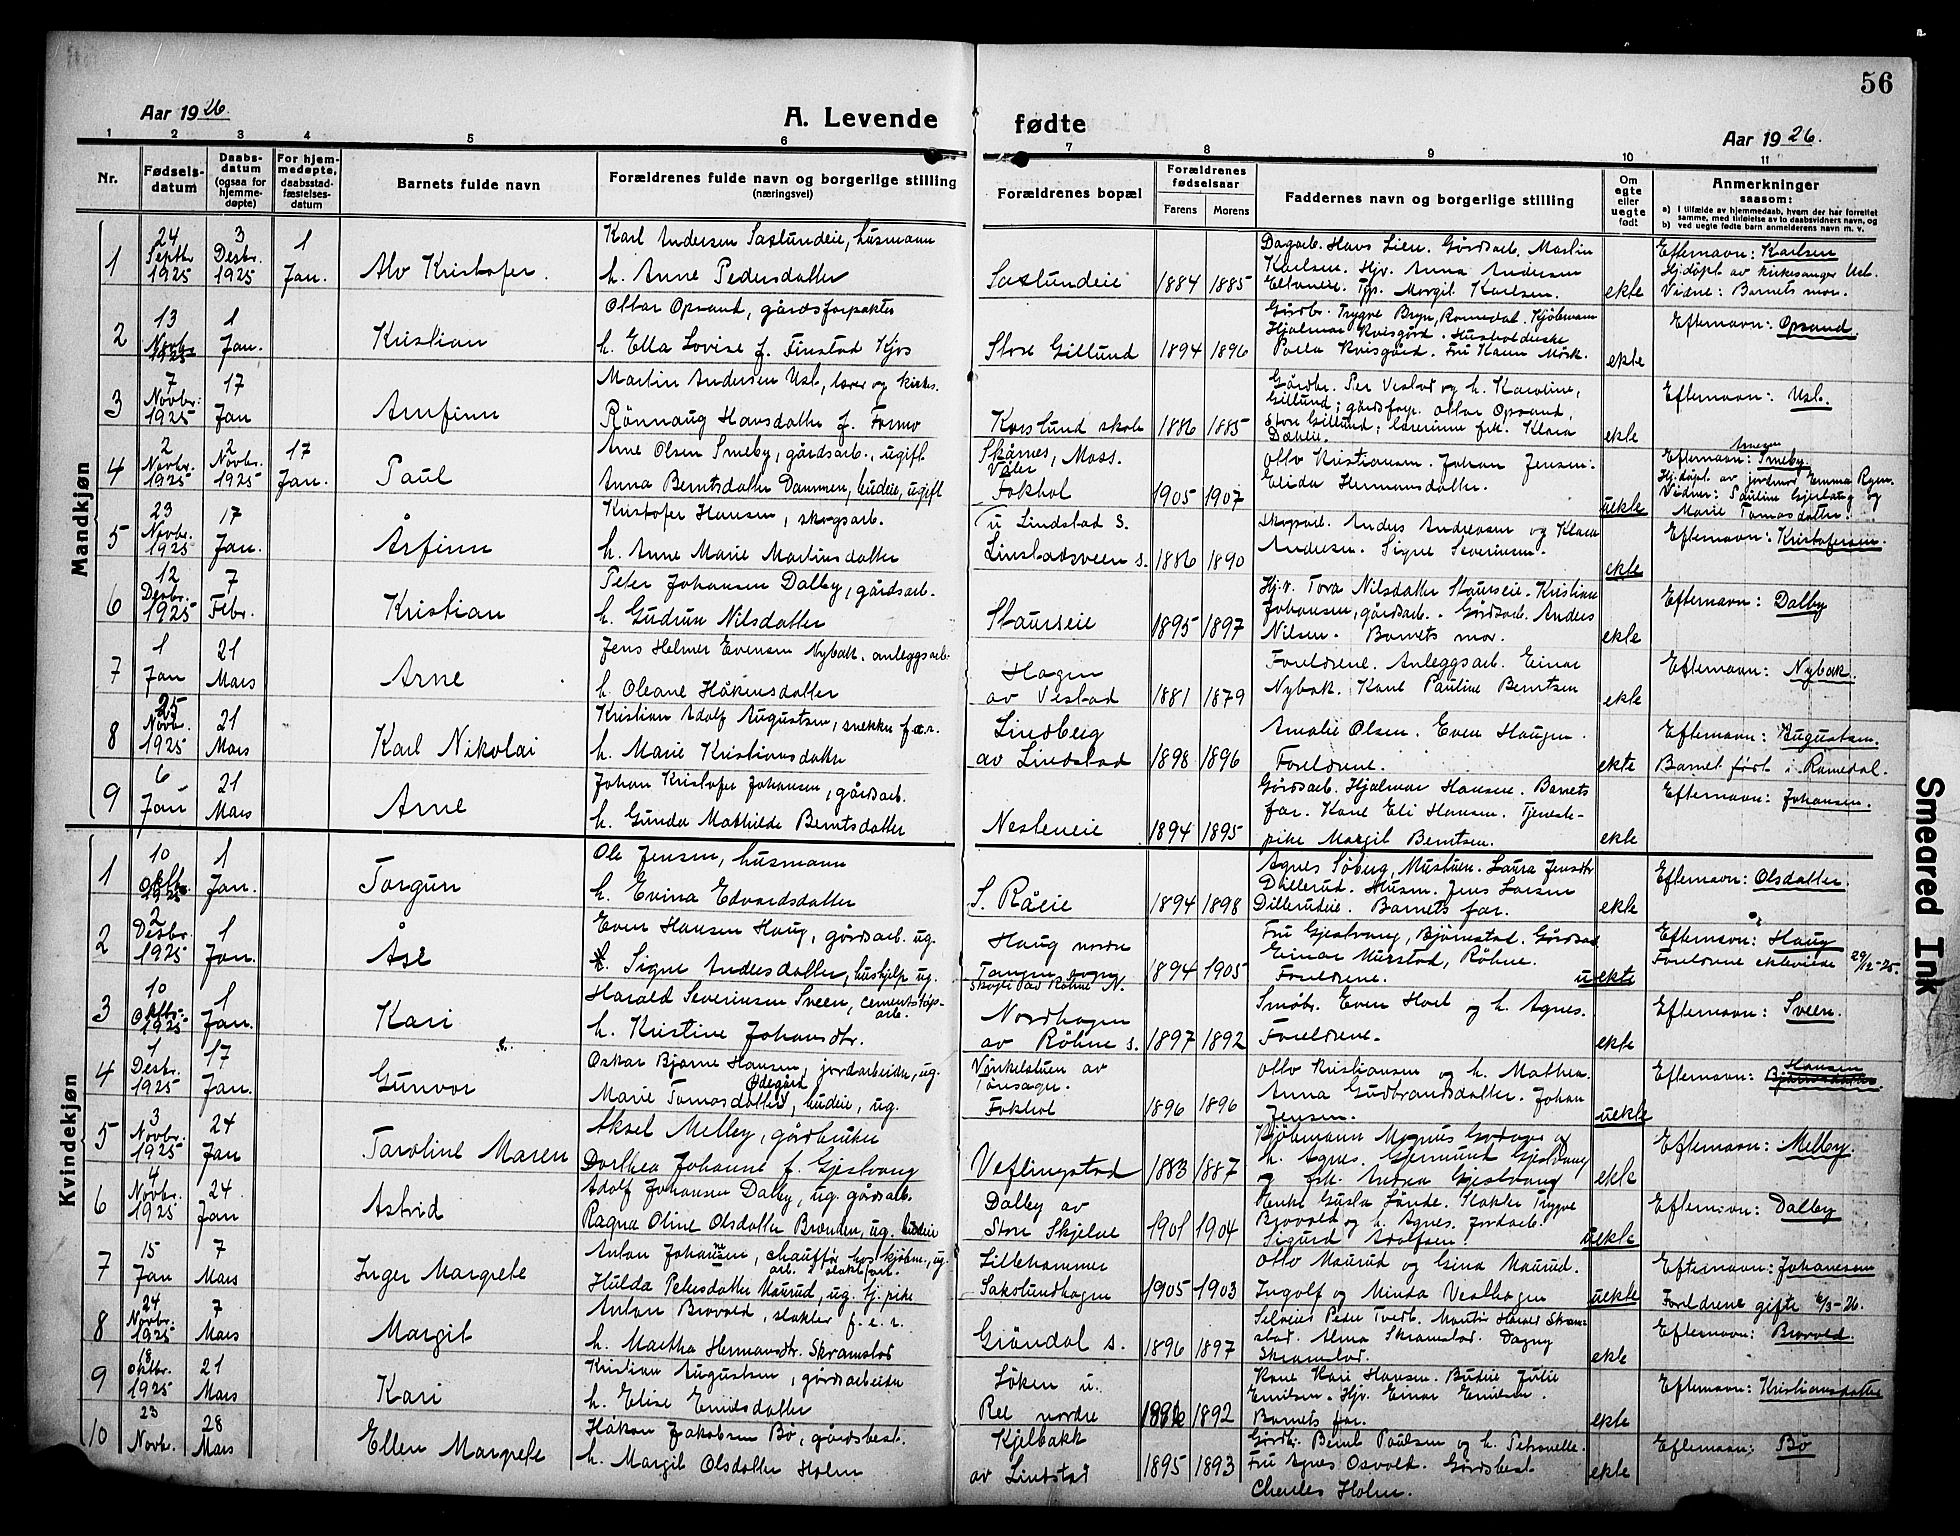 56
Aar 1926.
A. Levende fødte
Aar 1926.
1 2 3 4 5 6 7 8 9 10 11
Nr.
Fødselsdatum
Daabsdatum (ogsaa for hjemmedøpte)
For hjemmedøpte, daabsstadfæstelsesdatum
Barnets fulde navn
Forældrenes fulde navn og borgerlige stilling (næringsvei)
Forældrenes bopæl
Forældrenes fødselsaar
Farens Morens
Faddernes navn og borgerlige stilling
Om egte eller uegte født
Anmerkninger saasom:
a) I tilfælde av hjemmedaab, hvem der har forrettet samme, med tilføielse av to daabsvidners navn, og
b) ved uegte fødte barn anmelderens navn m. v.
Mandkjøn
1 24 Septbr. 1925 3 Desbr. 1925 1 Jan. Alv Kristofer.
Karl Andersen Saslundeie, husmann
h. Anne Pedersdatter
Saslundeie 1884 1885
Dagarb. Hans Lien. Gårdsarb. Martin
Karlsen. Hjv. Anna Andersen
Margit Karlsen.
ekte
Efternavn: Karlsen
Hjdøpt av kirkesanger Usl.
Vidne: Barnets mor.
2 13 Novbr. 1925 1 Jan. Kristian
Ottar Opsand, gårdsforpakter
h. Ella Lovise f. Finstad Kjos
Store Gillund 1894 1896
Gårdbr. Trygve Bryn, Romedal. Kjøbmann
Hjalmar Kvisgård. Husholderske
Kvisgård. Fru Karen Mørk.
ekte
Efternavn: Opsand.
3 7 Novbr. 1925 17 Jan Arnfinn
Martin Andersen Usl, lærer og kirkes.
Rønnaug Hansdatter f. Formo
Korslund skole 1886 1885
Gårdbr. Per Vestad og h. Karoline,
Gillund; gårdsforp. Ottar Opsand,
Store Gillund; lærerinne frk. Klara
Dæhlie.
ekte
Efternavn: Usl.
4 2 Novbr. 1925 2 Novbr. 1925 17 Jan. Paul
Arne Olsen Smeby, gårdsarb., ugift
Anna Berntsdatter Dammen, budeie, ugift
Skårnes, Moss.
Våler
Fokhol 1905 1907
Otto Kristiansen. Johan Jensen.
Elida Hermansdatter.
uekte
Efternavn: Smeby.
Hjdøpt. av jordmor Emma Ryen.
Vidner: Pauline Gjerluug og
Marie Tomasdatter.
5 23 Novbr. 1925 17 Jan. Årfinn
Kristofer Hansen, skogsarb.
h. Anne Marie Martinsdatter
u Lindstad S.
Linstadsveen s. 1886 1890
Skogsarb. Anders Andreasen og Klara
Andersen. Signe Severinsen.
ekte
Efternavn: Kristofersen.
6 12 Desbr. 1925 7 Febr. Kristian
Peter Johansen Dalby, gårdsarb.
h. Gudrun Nilsdatter
Staurseie 1895 1897
Hjv. Tora Nilsdatter Staurseie. Kristian
Johansen, gårdsarb. Gårdsarb. Anders
Nilsen. Barnets mor.
ekte
Efternavn: Dalby
7 1 Jan 21 Mars Arne
Jens Helmer Evensen Nybak. anleggsarb.
h. Oleane Håkensdatter
Hagen
av Vestad 1881 1879
Foreldrene. Anleggsarb. Einar
Nybak. Kone Pauline Berntsen
ekte
Efternavn: Nybak.
8 25 Novbr. 1925 21 Mars Karl Nikolai
Kristian Adolf Augustsen, snekker f.e.r.
h. Marie Kristiansdatter
Lindberg
av Lindstad 1898 1896
Amalie Olsen. Even Haugen.
Foreldrene.
ekte
Efternavn: Augustsen.
Barnet født i Romedal.
9 6 Jan 21 Mars Arne
Johan Kristofer Johansen, gårdsarb.
h. Gunda Mathilde Berntsdatter
Nesteneie 1894 1895
Gårdsarb. Hjalmar Hansen. Barnets
far. Kone Eli Hansen. Tjeneste-
pike Margit Berntsen.
ekte
Efternavn: Johansen.
Kvindekjøn
1 10 Oktbr. 1925 1 Jan. Torgun
Ole Jensen, husmann
h. Evina Edvardsdatter
S. Råeie 1894 1898
Agnes Søberg, Mustuen. Laura Jensdtr
Dillerud. Husm. Jens Larsen
Dillerudeie. Barnets far.
ekte
Efternavn: Olsdatter.
2 2 Desbr. 1925 1 Jan. Åse
Even Hansen Haug, gårdsarb. ug.
Signe Andersdatter, hushjelp ug.
Haug nordre
Tangen
skogte av Røhne N. 1894 1905
Fru Gjestvang, Bjørnstad. Gårdsarb
Einar Murstad, Røhne.
Foreldrene.
uekte
Efternavn: Haug
Foreldrene ekteviede 29/12-25.
3 10 Oktbr. 1925 1 Jan. Kari
Harald Severinsen Sveen, cementstøp-
arb.
h. Kristine Johansdtr.
Nordhagen
av Røhne s. 1897 1892
Småbr. Even Hoel og h. Agnes.
Foreldrene.
ekte
Efternavn: Sveen.
4 1 Desbr. 1925 17 Jan. Gunvor
Oskar Bjarne Hansen, jordarbeider, ug.
Ødegård
Marie Tomasdatter, budeie, ug.
Vinkelstuen av
Tønsager.
Fokhol 1896 1896
Otto Kristiansen og h. Mathea.
Anna Gudbrandsdatter. Johan
Jensen.
uekte
Hansen
Efternavn:
5 3 Novbr. 1925 24 Jan Taroline Maren
Aksel Melby, gårdbruker
Dorthea Johanne f. Gjestvang
Veflingstad 1883 1887
Kjøbmann Magnus
h. Agnes. Gjermund Gjestvang
og frk. Andrea Gjestvang
ekte
Efternavn: Melby.
6 4 Novbr. 1925 24. Jan Astrid
Adolf Johansen Dalby, ug. gårdsarb.
Ragna Oline Olsdatter Brenden, ug. budeie
Dalby av
Store Skjelve 1901 1904
Enke Gusta Sønde. Slakter Trygve
Brovold og h. Agnes. Jordarb.
Sigurd Adolfsen.
uekte
Efternavn: Dalby
7 15 Jan 7 Mars Inger Margrete
Anton Johansen, chauffør hos kjøbm., ug.
Hulda Petersdatter Maurud, ug. tj. pike
Lillehammer
Sakslundhagen 1905 1903
Otto Maurud og Gina Maurud.
Ingolf og Minda Vesthagen
uekte
Efternavn: Johanesen
Foreldrene gifte 6/3-26.
8 24 Novbr. 1925 7 Mars Margit
Anton Brovold, slakter f.e.r.
h. Martha Hermansdtr. Skramstad
Grøndal s. 1896 1897
Selveier Peder Tvedt. Harald Skram-
stad. Alma Skramstad. Dagny
Skramstad.
ekte
Efternavn: Brovold.
9 18 Oktbr. 1925 21 Mars Kari
Kristian Augustsen, gårdsarbeider
h. Elise Emilsdatter
Løken u.
Ree nordre 1892
Kone Kari Hansen. Budeie Julie
Emilsen. Hjv. Einar Emilsen.
Barnets far.
ekte
Efternavn: Kristiansdatter
10 23 Novbr. 28 Mars Ellen Margrete
Håkon Jakobsen Bø, gårdsbest.
h. Margit Olsdatter Holm
Kjelbakk
av Lindstad 1895 1893
Gårdbr. Bernt Paulsen og h. Petronelle.
Fru Agnes Osvold. Gårdsbest
Charles Holm.
ekte
Efternavn: Bø
Smeared Ink